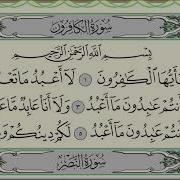 سُورَةُ الكَافِرُونَ
بِسْمِ ٱللَّهِ ٱلرَّحْمَٰنِ ٱلرَّحِيمِ
يَٰٓأَيُّهَا ٱلْكَٰفِرُونَ ١ لَآ أَعْبُدُ مَا تَعْ
نتُمْ عَٰبِدُونَ مَآ أَعْبُدُ ٣ وَلَآ أَنَا۠ عَابِدٌ مَّا عَ
نتُمْ عَٰبِدُونَ مَآ أَعْبُدُ ٥ لَكُمْ دِينُكُمْ وَ
سُورَةُ النَّصْرِ